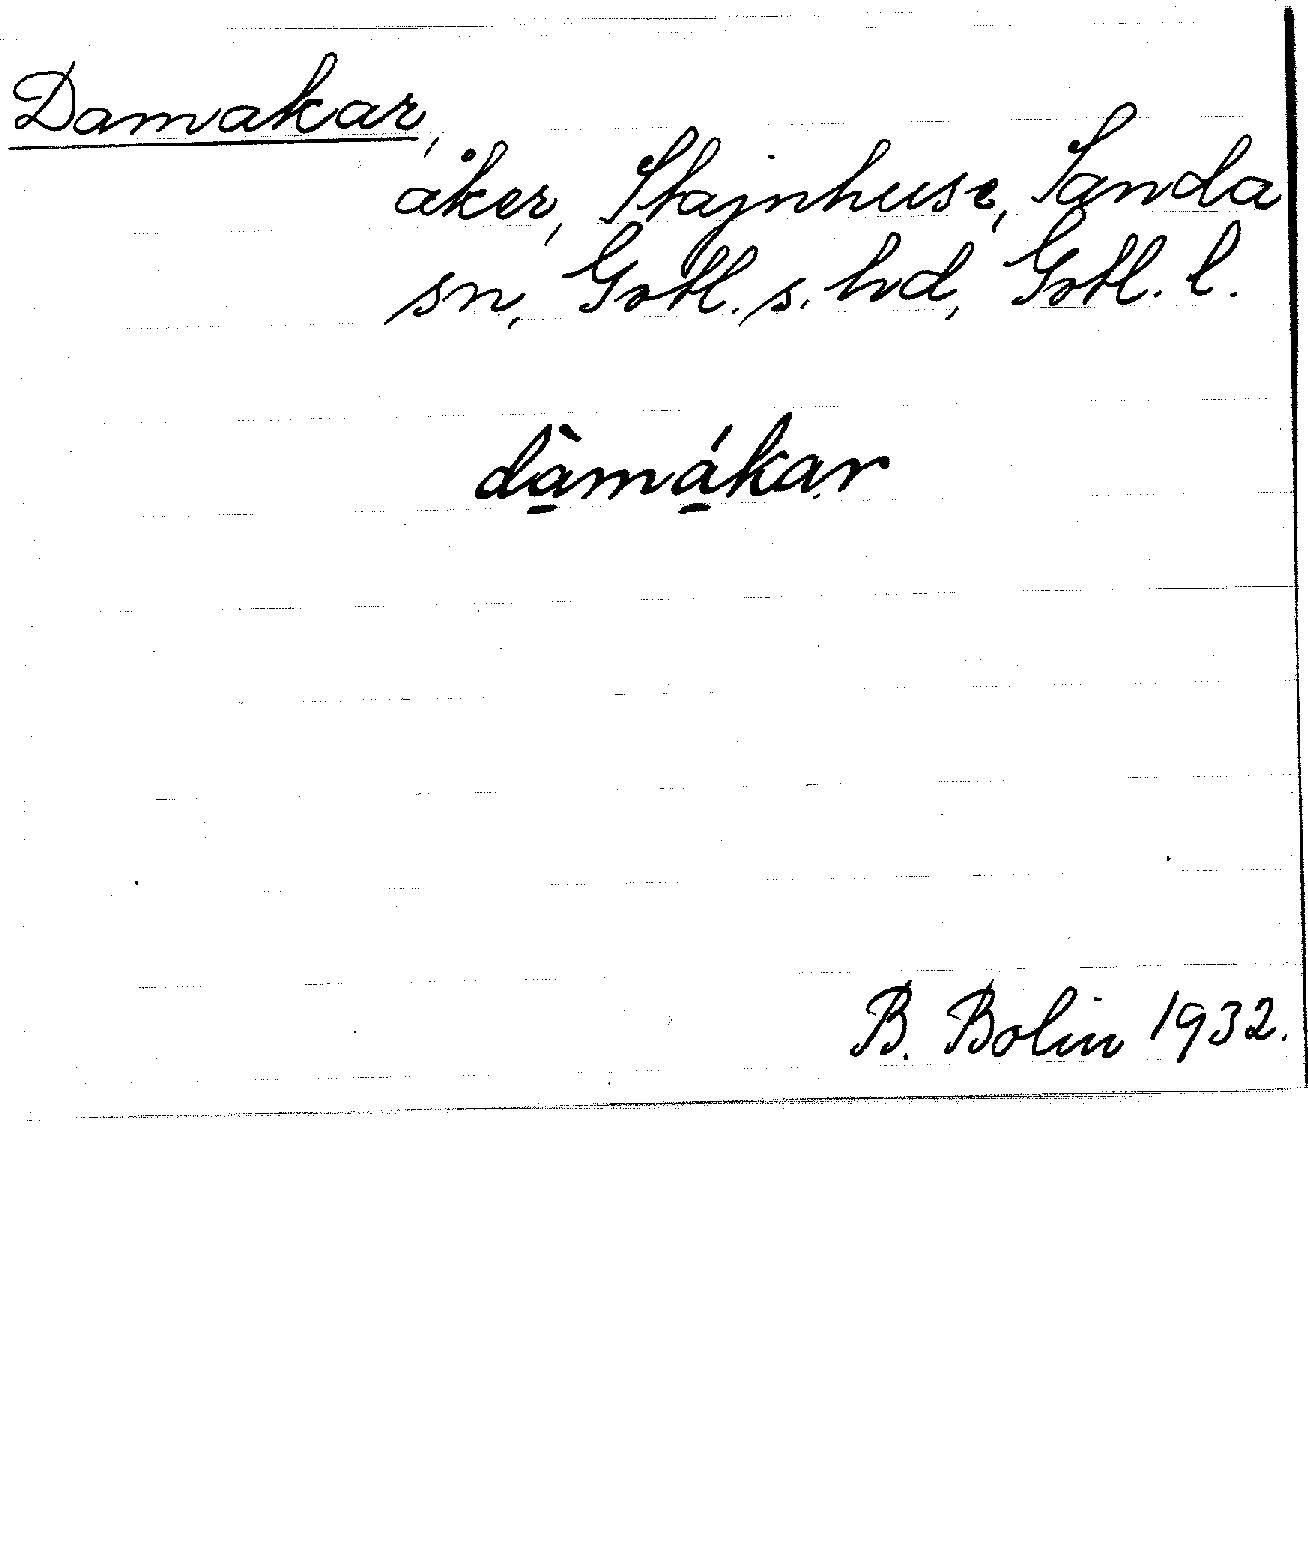 Damakar,
åker, Stajnhuse, Sanda
sn, Gotl. s. hd, Gotl. l.
dà̱má̱kar
B. Bolin 1932.